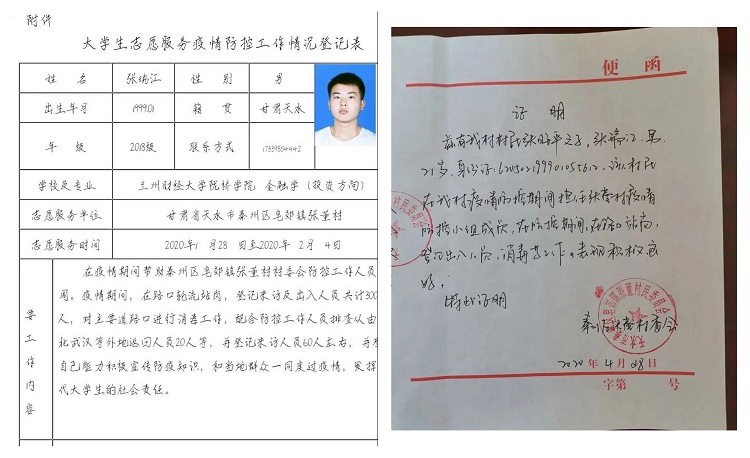 附件
大学生志愿服务疫情防控工作情况登记表
姓 名 张瑞江 性 别 男
出生年月 1999.01 籍 贯 甘肃天水
年 级 2018级 联系方式
学校及专业 兰州财经大学陇桥学院 金融学（投资方向）
志愿服务单位 甘肃省天水市秦州区皂郊镇张董村
志愿服务时间 2020年1 月28 日至2020年 2月 4日
要工作内容
在疫情期间帮助秦州区皂郊镇张董村村委会防控工作人员
周。疫情期间，在路口轮流站岗，登记来访及出入人员共计300
人，对主要道路口进行消毒工作，配合防控工作人员排查从由
北武汉等外地返回人员20人等，并登记来访人员60人左右，并
自己能力积极宣传防疫知识，和当地群众一同度过疫情，发挥
代大学生的社会责任。
便 函
证 明
兹有我村村民张 平之子，张瑞江，男
21岁，身份证：，该村民
在我村疫情防控期间担任张董村疫情
防控小组成员，在防控期间，在路口站岗，
登记出入人员，消毒等工作。表现积极良
好，
特此证明
秦州区张董村委会
2020 年 4 月 28 日
字第 号